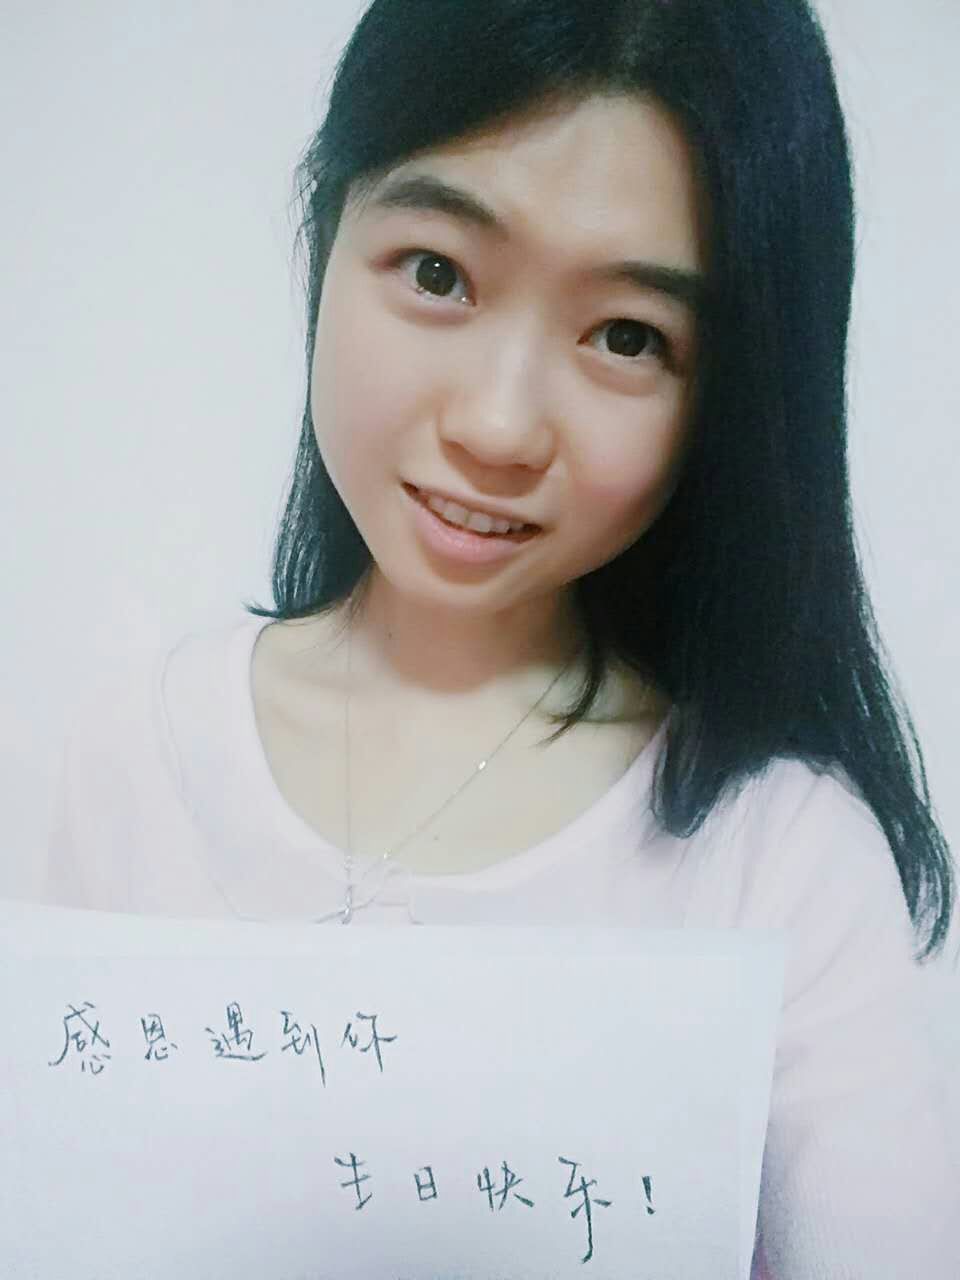 感恩遇到你
生日快乐！